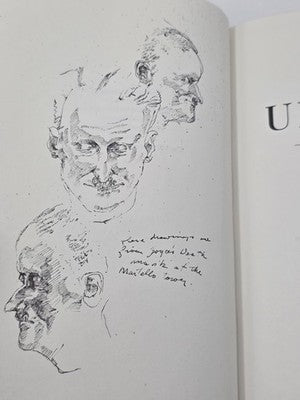 These drawings are
from Joyce's Death
mask at the
Martello Tower.
U